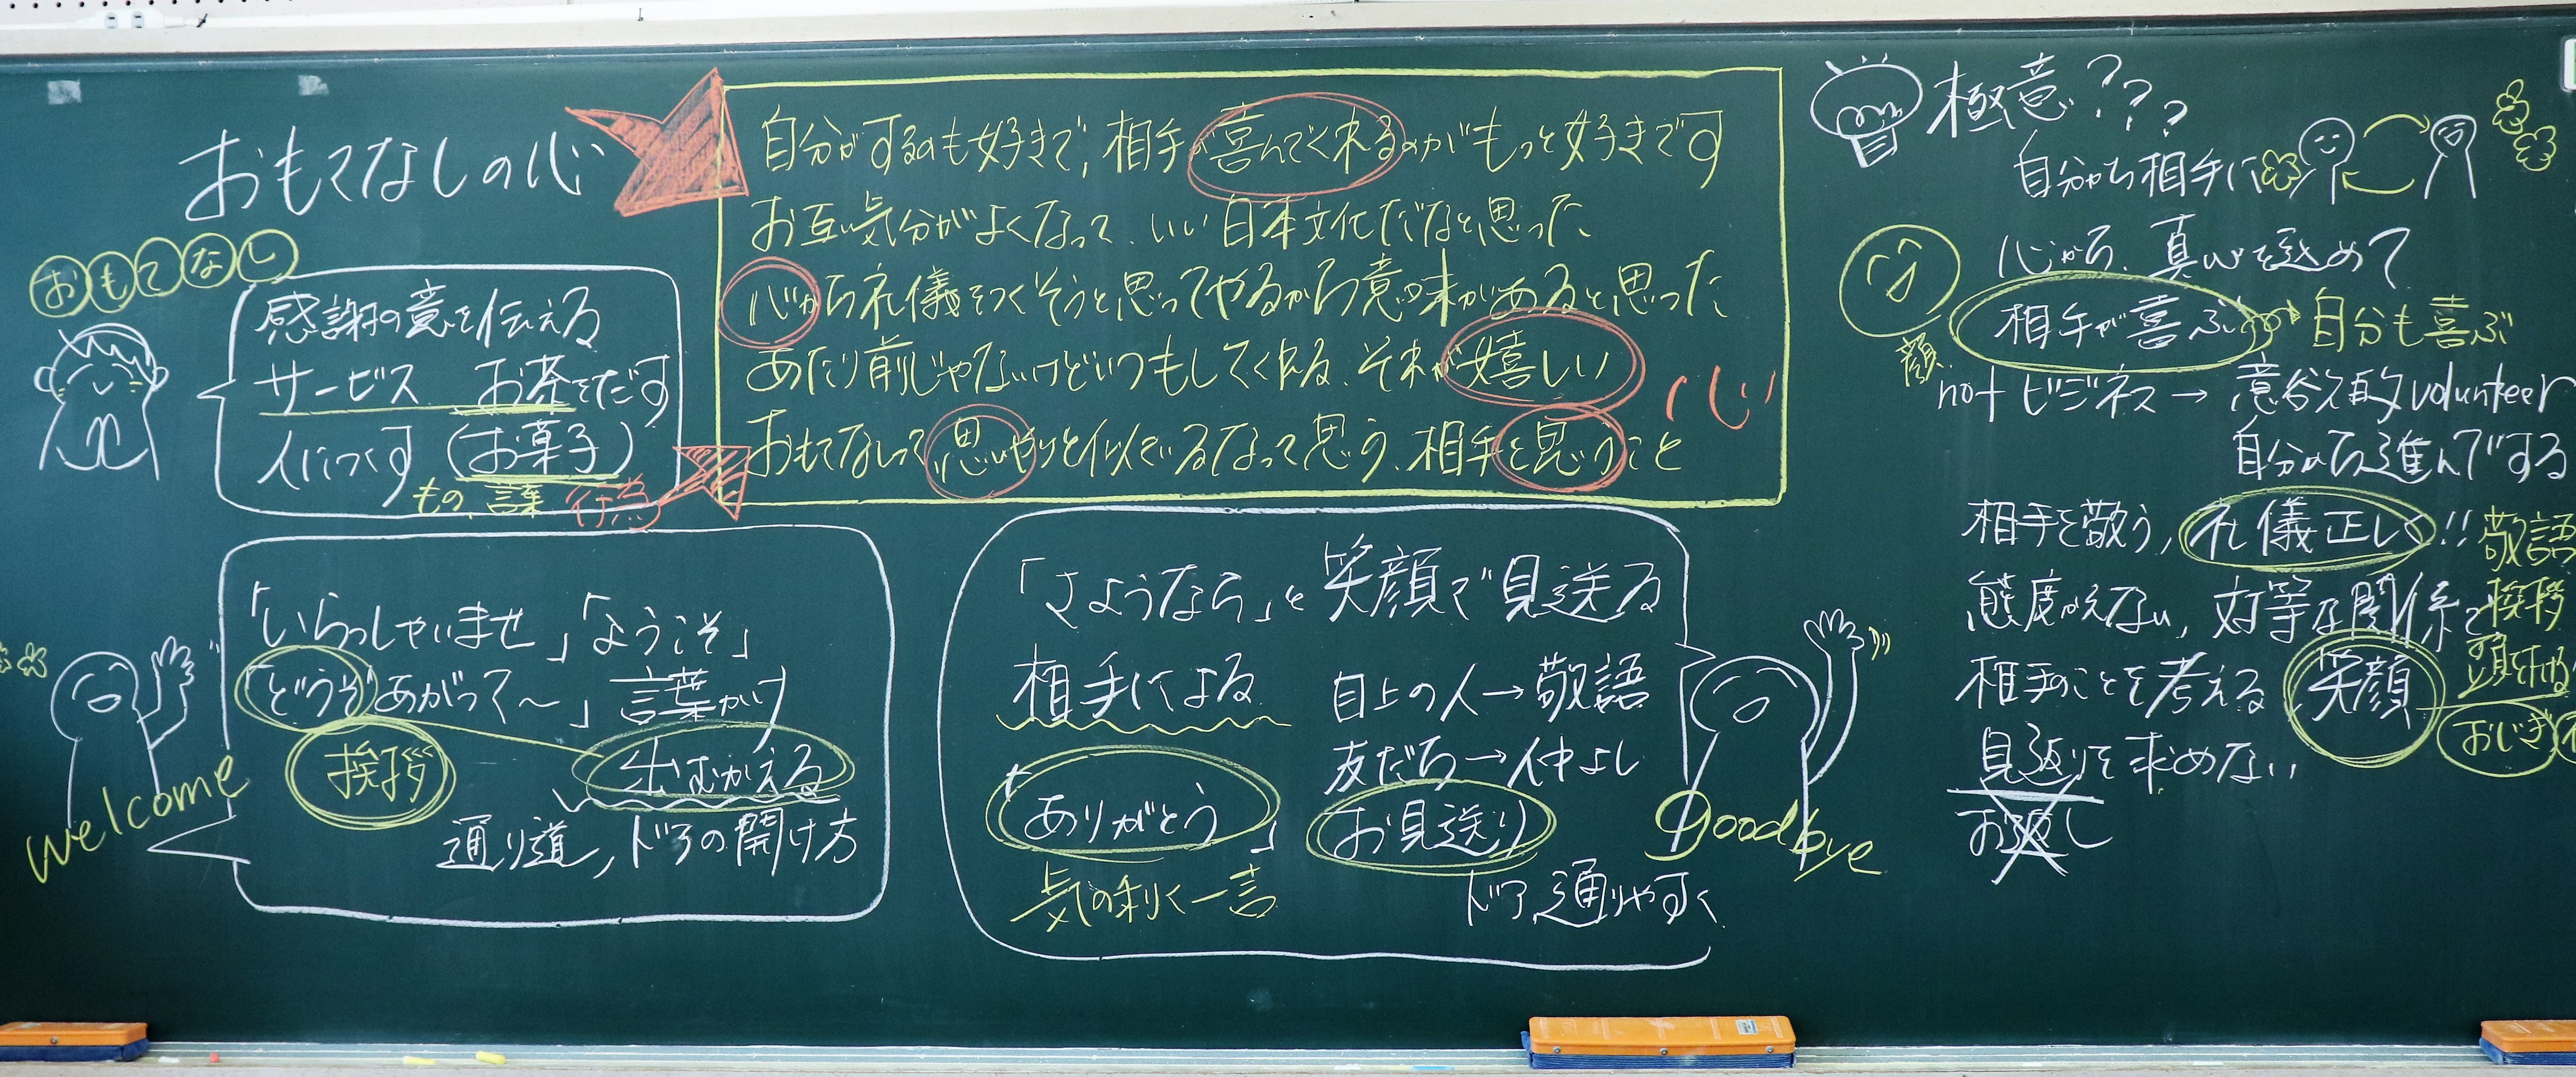 おもてなしの心
おもてなし
感謝の意を伝える
サービス お茶をだす
人につくす (お菓子)
もの、言葉 行為
自分がするのも好きで、相手が喜んでくれるのがもっと好きです
お互い気分がよくなって、いい日本文化だなと思った
心から礼儀をつくそうと思ってやるから意味があると思った
あたり前じゃないけどいつもしてくれる、それが嬉しい
おもてなしって思いやりと似ているなって思う、相手を思うこと
心
「いらっしゃいませ」「ようこそ」
「どうぞあがって〜」言葉かけ
挨拶 出むかえる
通り道,ドアの開け方
welcome
「さようなら」と笑顔で見送る
相手による
目上の人→敬語
友だち→仲よし
「ありがとう」
お見送り
気の利く一言
ドア,通りやすく
Goodbye
極意???
自分から相手に
心から、真心を込めて
相手が喜ぶ→自分も喜ぶ
顔
notビジネス→意欲的volunteer
自分から進んでする
相手を敬う,礼儀正しく!!敬語
態度かえない,対等な関係で挨拶
相手のことを考える 笑顔 頭を下げる
おじぎ
見返りを求めない
お返し